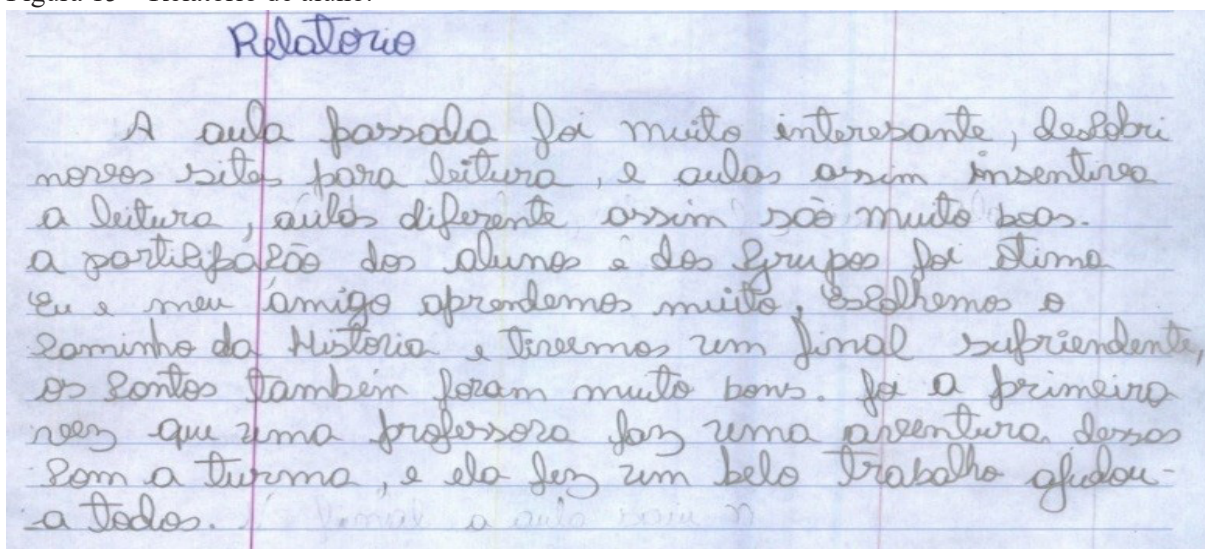 Relatorio
A aula passada foi muito interesante, descobri
novos sites para leitura, e aulas assim insentiva
a leitura, aulas diferente assim são muito boas.
a participação dos alunos e dos grupos foi ótima
eu e meu amigo aprendemos muito, escolhemos o
caminho da Historia e tivemos um final supriendente,
os contos também foram muito bons. foi a primeira
vez que uma professora faz uma aventura dessas
com a turma, e ela fez um belo trabalho ajudou-
a todos.